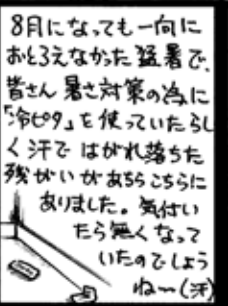 8月になっても一向に
おとろえなかった猛暑で、
皆さん暑さ対策の為に
「冷ピタ」を使っていたらし
く汗ではがれ落ちた
残がいがあちらこちらに
ありました。気付い
たら無くなって
いたのでしょう
ね〜(汗)